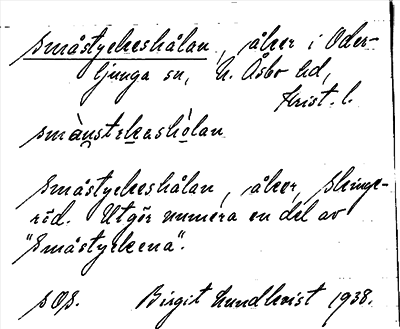 Småstyckeshålan, åker i Oder-
ljunga sn, N. Åsbo hd,
Krist. l.
Småstyckeshålan, åker, Skinge-
röd. Utgör numera en del av
"Småstyckena".
s O s. Birgit Lundkvist 1938.